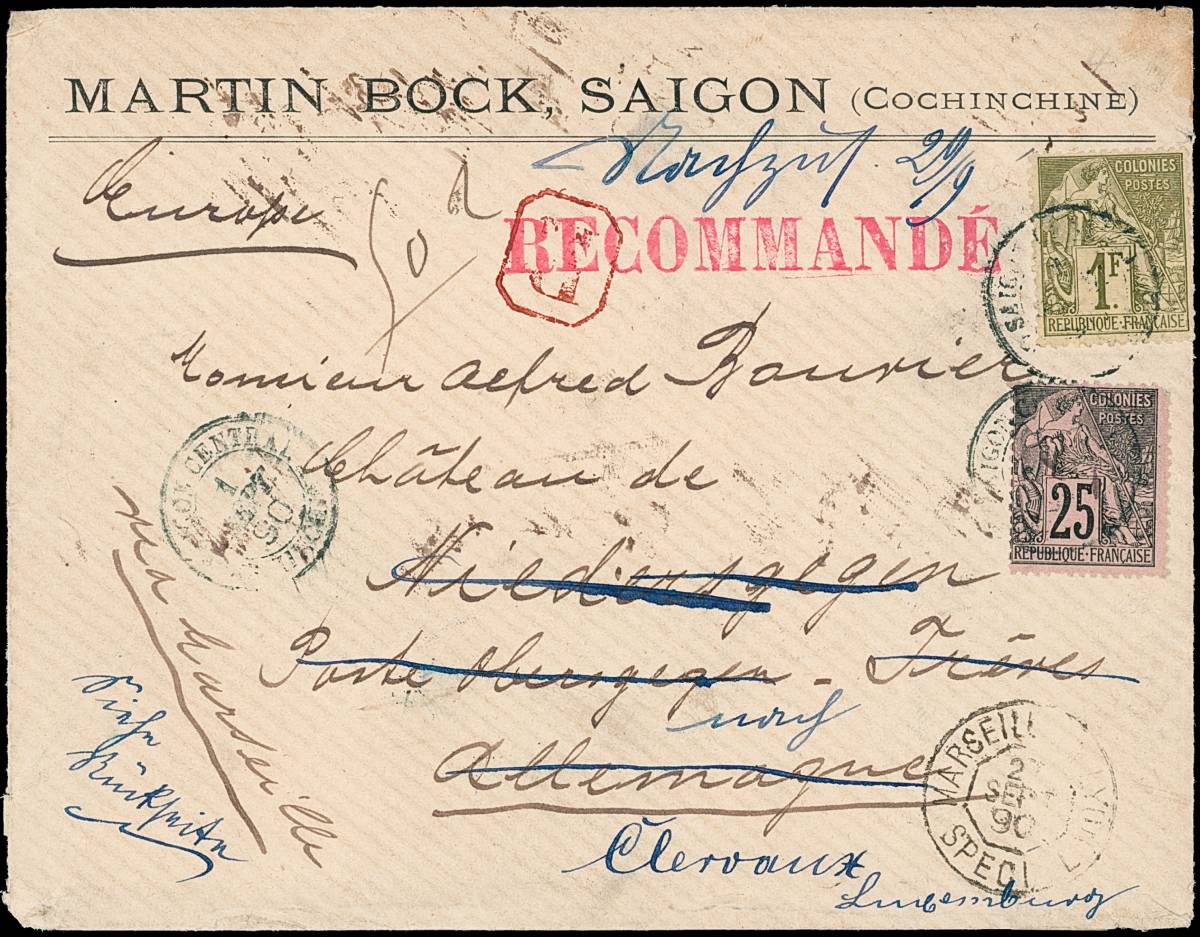 MARTIN BOCK, SAIGON (COCHINCHINE)
Europe
Nachzut. 29/9
R
RECOMMANDÉ
COLONIES
POSTES
1F.
REPUBLIQUE·FRANÇAISE
SAIGO
Monsieur Alfred Bouvier
COLONIES
POSTES
25
REPUBLIQUE·FRANÇAISE
AIGON
Château de
GON CENTRAL
1
SEPT
90
Niedersgegen
Poste Obersgegen - Trèves
nach
Allemagne
via Marseille
Siehe
Rückseite
MARSEILL
2
SEPT
90
SPECI
Clervaux
Luxemburg